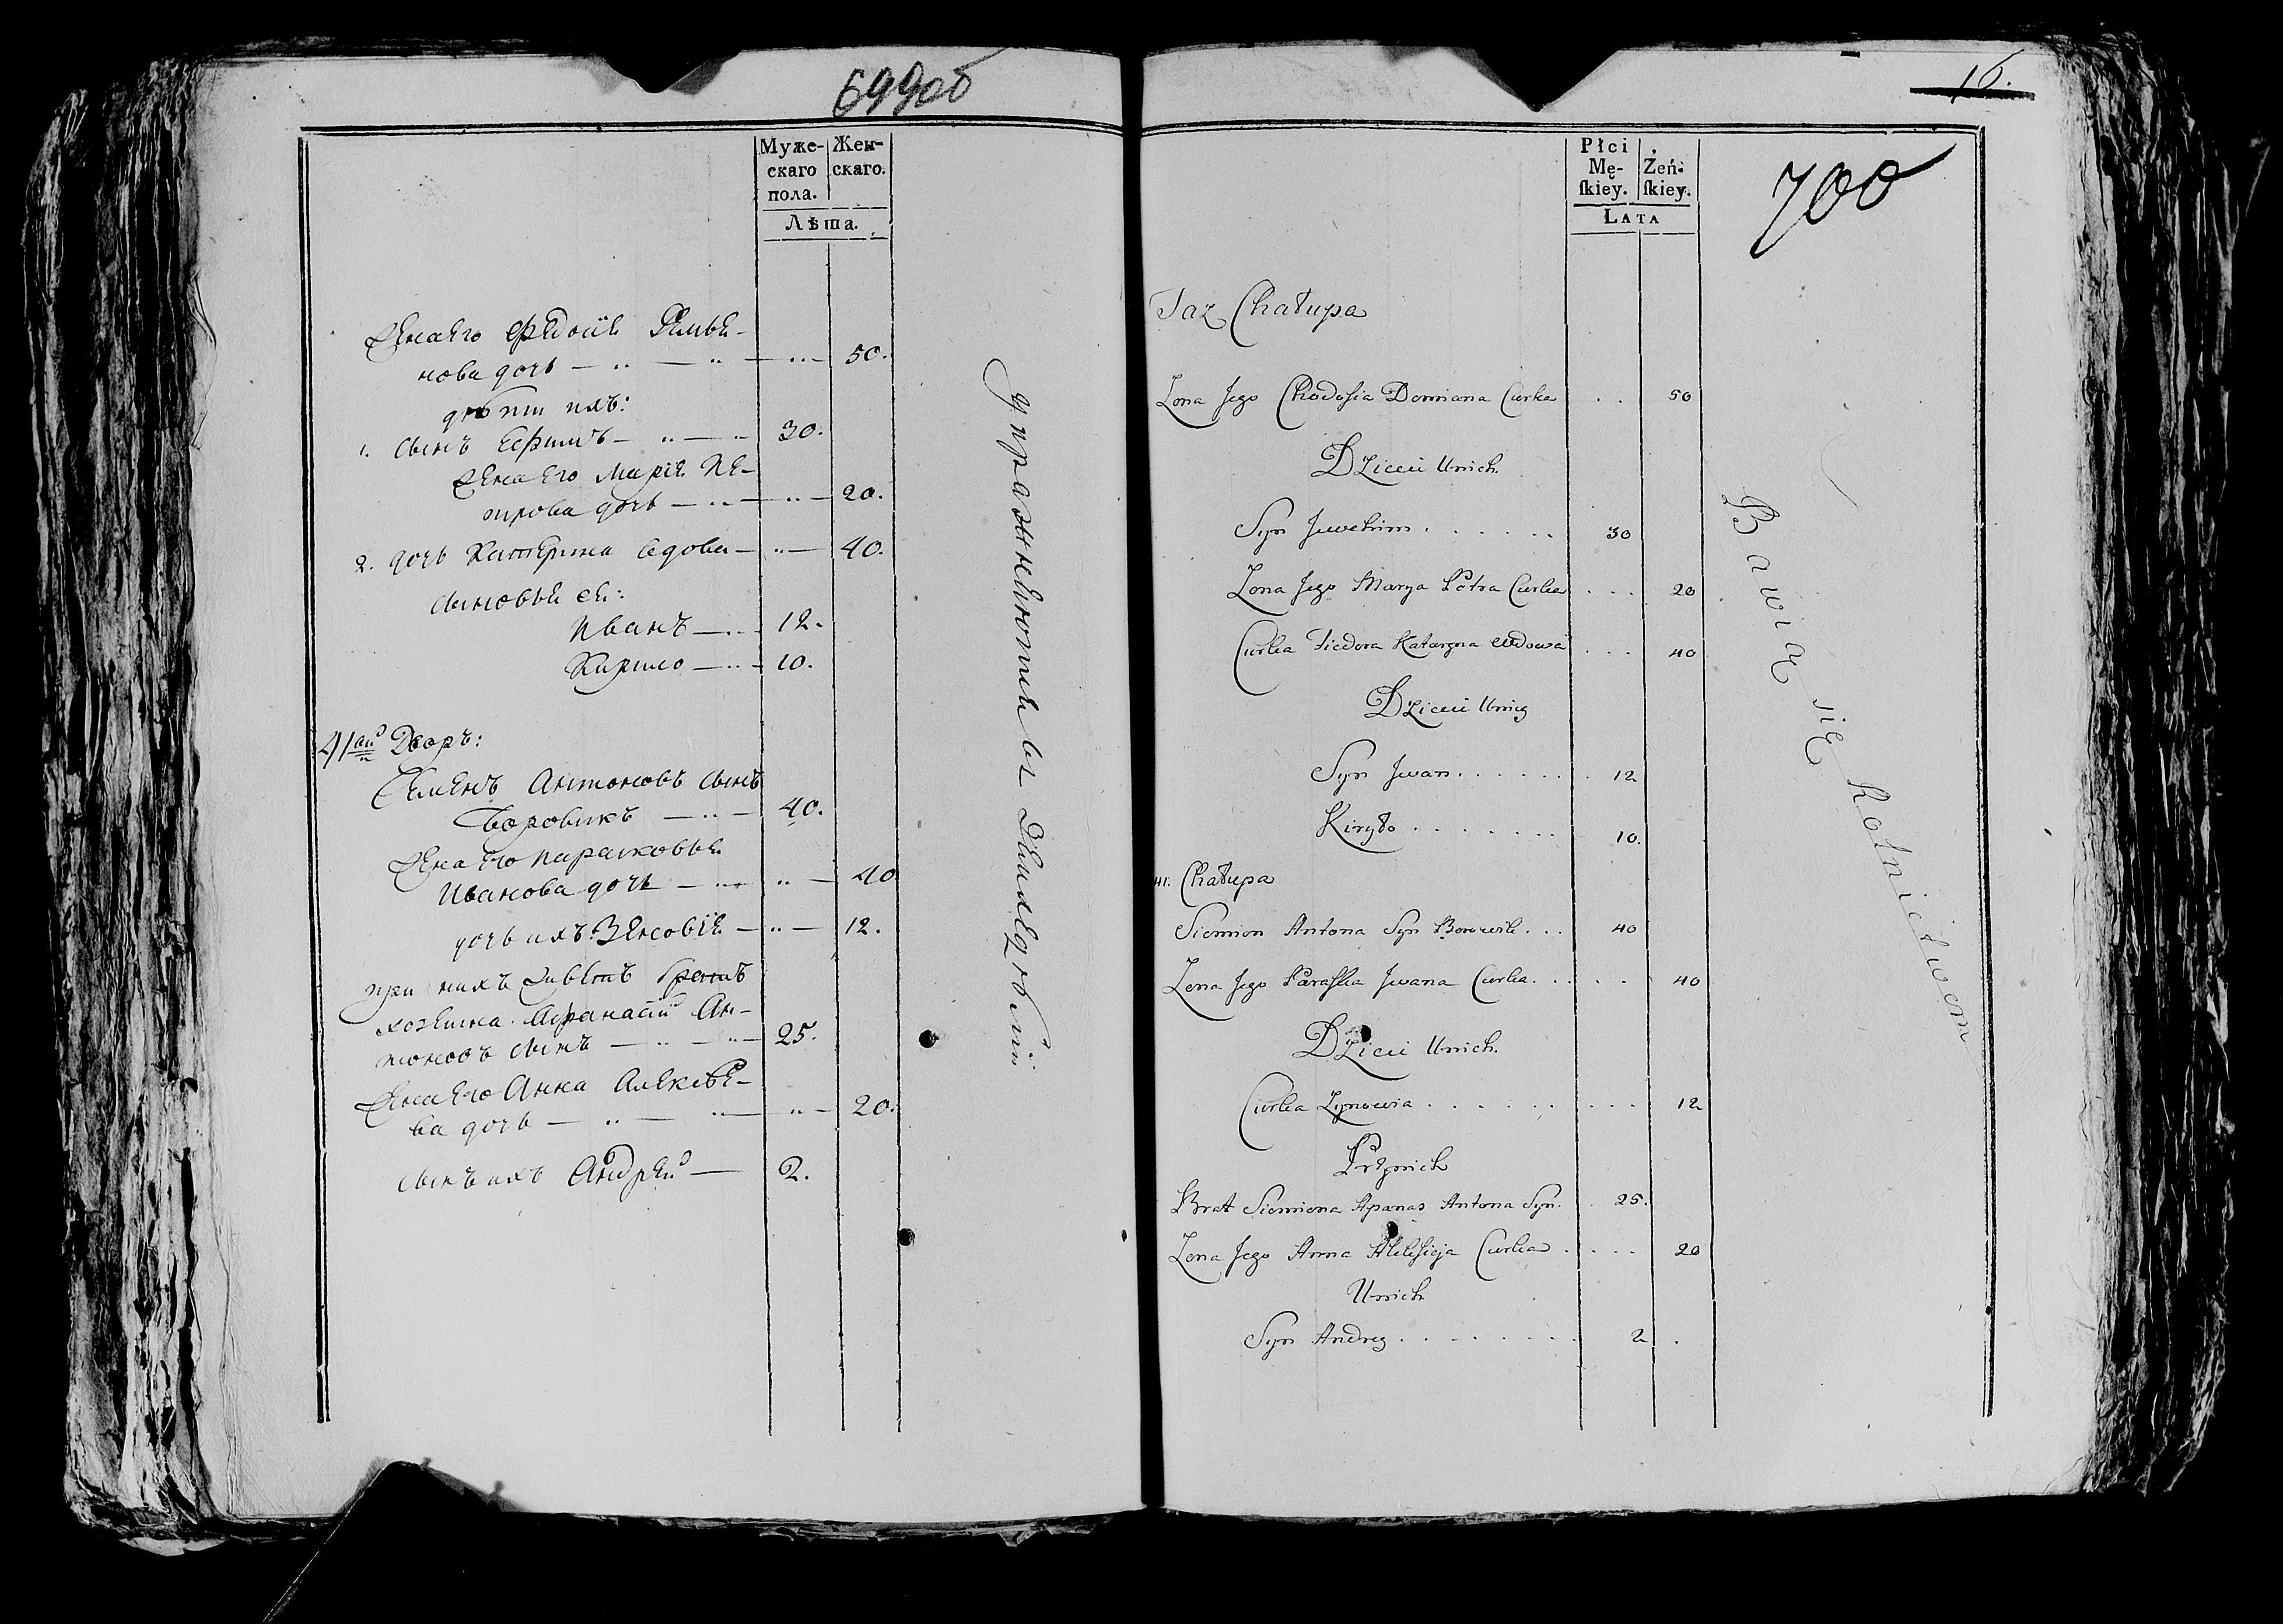 699об
Муже-
скаго
пола.
Жен-
скаго.
Лѣта.
жена его Федосiя Демья-
нова дочь — „ — „ — „ — 50.
дѣти ихъ:
1. сынъ Ефимъ — „ — „ 30.
жена его Марiя Пе-
трова дочь — „ — „ — 20.
2. дочь Катерина вдова — „ — 40.
сыновья ея:
Иванъ — „ — 12.
Кирило — „ — 10.
41ый Дворъ:
Семенъ Антоновъ сынъ
Боровикъ — „ — 40.
жена его Парасковья
Иванова дочь — „ — „ — 40
дочь ихъ Зеновiя — „ — 12.
при нихъ живетъ братъ
хозяина Афанасiй Ан-
тоновъ сынъ — „ — „ — 25.
жена его Анна Алексѣе-
ва дочь — „ — „ — „ — 20.
сынъ ихъ Андрей — 2.
упражняются въ Земледѣлiи
16.
700
Płci
Mę-
ſkiey.
Żeń-
ſkiey.
Lata
Taz Chałupa
Zona Jego Chodosia Domiana Curka . . 50
Dzieci Unich
Syn Juchim . . . . . 30
Zona Jego Marya Petra Curka . . . 20
Curka Fiedora Katarzyna Wdowa . . . 40
Dzieci Unieg
Syn Jwan . . . . . . 12
Kiryło . . . . . . . 10.
41. Chałupa
Siemion Antona Syn Borowik . . . 40
Zona Jego Paraska Jwana Curka . . . . 40
Dzieci Unich.
Curka Zynowia . . . . . . . . . 12
Przynich
Brat Siemiona Apanas Antona Syn. . 25.
Zona Jego Anna Aleksieja Curka . . . . 20
Unich
Syn Andrey . . . . . . . . 2 .
Bawią się Rolnictwem